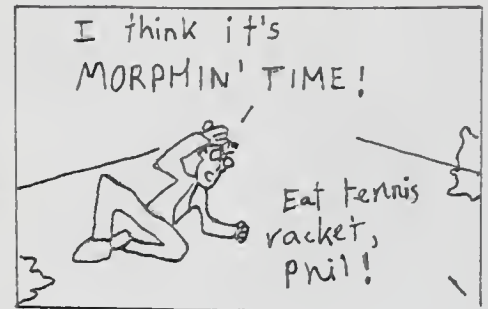 I think it's
MORPHIN' TIME!
Eat tennis
racket,
Phil!